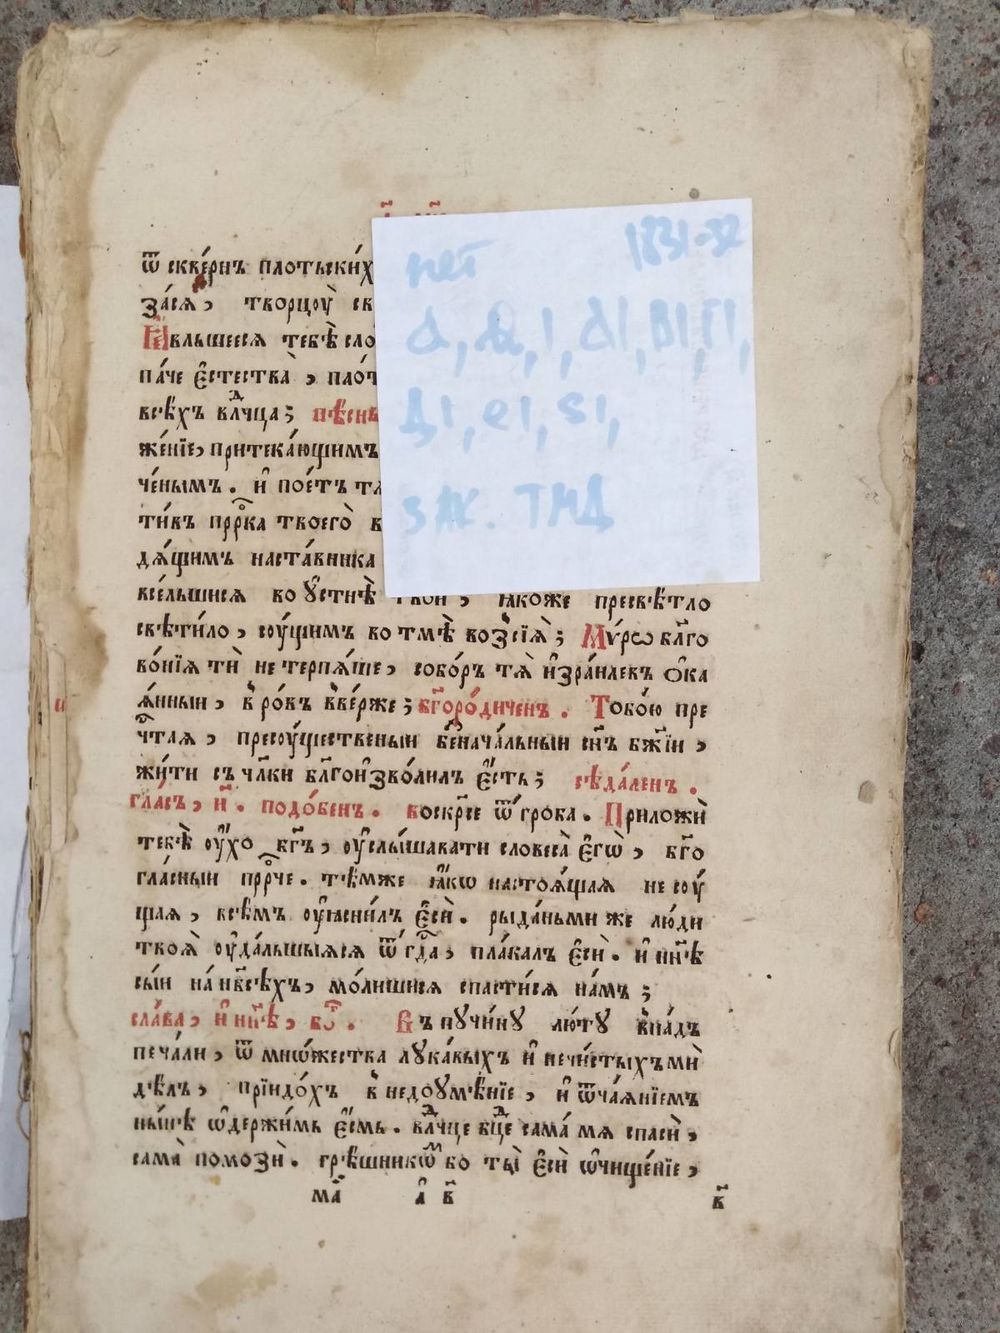 нет 1831-32
а, в, і, аі, ві, гі,
ді, еі, ѕі,
зак. тмд
ѿ скве́рнъ плотьски́х
за́сѧ, творцоу̀
ꙗ҆́вльшеесѧ тебѣ̀ сло
па́че є҆стества̀, пло́т
всѣ́хъ влⷣчца; пѣ́снь
же́нїе, притека́ющимъ
че́нымъ. и҆ пое́тъ
ти́въ прⷪ҇рка твоего̀ в
дѧ́щимъ наста́вника
все́льшиисѧ во ᲂу҆стнѣ̀ твои̑, ꙗ҆́коже пресвѣ́тло
свѣти́ло, соу́щимъ во тмѣ̀ возсїѧ̀; Мѵ́рѡ бл҃го
во́нїѧ тѝ не терпѧ́ше, собо́ръ тѧ̀ і҆зра́илевъ ѻ҆ка
ѧ́нныи, в̾ ро́въ вве́рже; бг҃оро́диченъ. Тобо́ю пре
чⷭ҇таѧ, пресоу́щественыи беꙁнача́льныи сн҃ъ бж҃їи,
жи́ти съ чл҃ки бл҃гои҆зво́лилъ є҆́сть; сѣда́ленъ.
гла́съ, и҃. подо́бенъ. воскрⷭ҇е ѿ гро́ба. Приложѝ
тебѣ̀ ᲂу҆́хо бг҃ъ, ᲂу҆слы́шавати словеса̀ є҆гѡ̀, бг҃о
гла́сныи прⷪ҇рче. тѣ́мже ꙗ҆́кѡ настоѧ́щаѧ не соу́
щаѧ, всѣ́мъ ᲂу҆ꙗсни́лъ є҆сѝ. рыда́ньми же лю́ди
твоѧ̀ ᲂу҆да́льшыѧсѧ ѿ гдⷭ҇а, пла́калъ є҆сѝ. и҆ нн҃ѣ
сы́и на нб҃сѣ́хъ, мо́лишисѧ спасти́сѧ на́мъ;
сла́ва, и҆ нн҃ѣ, бо҃. Въ пꙋчи́нꙋ лю́тꙋ впа́дъ
печа́ли, ѿ мно́жества лꙋка́выхъ и҆ нечи́стыхъ мѝ
дѣ́лъ, прїидо́хъ в̾ недоꙋмѣ́нїе, и҆ ѿча́ѧнїемъ
ны́нѣ ѡ҆держи́мь є҆́смь. влⷣчце бц҃е сама́ мѧ спасѝ,
сама̀ помозѝ. грѣ́шникѡⷨ бо ты̀ є҆сѝ ѡ҆чище́нїе,
ма҃ а҃ в҃ в҃